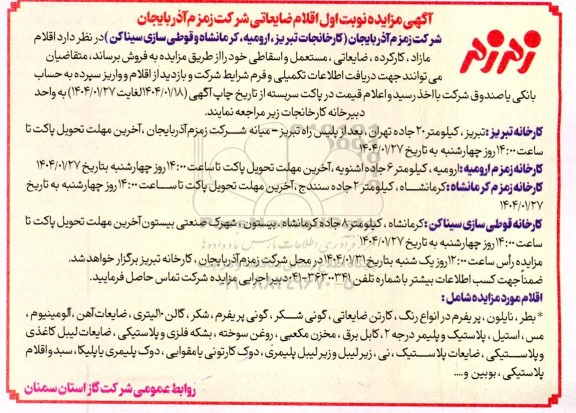 آگهی مزایده نوبت اول اقلام ضایعاتی شرکت زمزم آذربایجان
شرکت زمزم آذربایجان (کارخانجات تبریز، ارومیه، کرمانشاه و قوطی سازی سیناکن) در نظر دارد اقلام
مازاد، کارکرده، ضایعاتی، مستعمل و اسقاطی خود را از طریق مزایده به فروش برساند، متقاضیان
می توانند جهت دریافت اطلاعات تکمیلی و فرم شرایط شرکت و بازدید از اقلام و واریز سپرده به حساب
بانکی یا صندوق شرکت با اخذ رسید و اعلام قیمت در پاکت سربسته از تاریخ چاپ آگهی (۱۴۰۴/۰۱/۱۸ لغایت ۱۴۰۴/۰۱/۲۷) به واحد
دبیرخانه کارخانجات زیر مراجعه نمایند.
زمزم
کارخانه تبریز: تبریز، کیلومتر ۲۰ جاده تهران، بعد از پلیس راه تبریز - میانه شرکت زمزم آذربایجان، آخرین مهلت تحویل پاکت تا
ساعت ۱۴:۰۰ روز چهارشنبه به تاریخ ۱۴۰۴/۰۱/۲۷
کارخانه زمزم ارومیه: ارومیه، کیلومتر ۶ جاده اشنویه، آخرین مهلت تحویل پاکت تا ساعت ۱۴:۰۰ روز چهارشنبه بتاریخ ۱۴۰۴/۰۱/۲۷
کارخانه زمزم کرمانشاه: کرمانشاه، کیلومتر ۲ جاده سنندج، آخرین مهلت تحویل پاکت تا ساعت ۱۴:۰۰ روز چهارشنبه به تاریخ
۱۴۰۴/۰۱/۲۷
کارخانه قوطی سازی سیناکن: کرمانشاه، کیلومتر ۸ جاده کرمانشاه، بیستون، شهرک صنعتی بیستون آخرین مهلت تحویل پاکت تا
ساعت ۱۴:۰۰ روز چهارشنبه به تاریخ ۱۴۰۴/۰۱/۲۷
مزایده رأس ساعت ۱۲:۰۰ روز یک شنبه بتاریخ ۱۴۰۴/۰۱/۳۱ در محل شرکت زمزم آذربایجان، کارخانه تبریز برگزار خواهد شد.
ضمناً جهت کسب اطلاعات بیشتر با شماره تلفن ۳۶۳۰۰۳۴۱-۰۴۱ دبیر اجرایی مزایده شرکت تماس حاصل فرمایید.
اقلام مورد مزایده شامل:
* بطر، نایلون، پریفرم در انواع رنگ، کارتن ضایعاتی، گونی شکر، گونی پریفرم، شکر، گالن ۱۰ لیتری، ضایعات آهن، آلومینیوم،
مس، استیل، پلاستیک و پلیمر درجه ۲، کابل برق، مخزن مکعبی، روغن سوخته، بشکه فلزی و پلاستیکی، ضایعات لیبل کاغذی
و پلاستیکی، ضایعات پلاستیک، نی، زیر لیبل و زیر لیبل پلیمری، دوک کارتونی یا مقوایی، دوک پلیمری یا پلیکا، سبد و اقلام
پلاستیکی، بوبین و....
روابط عمومی شرکت گاز استان سمنان